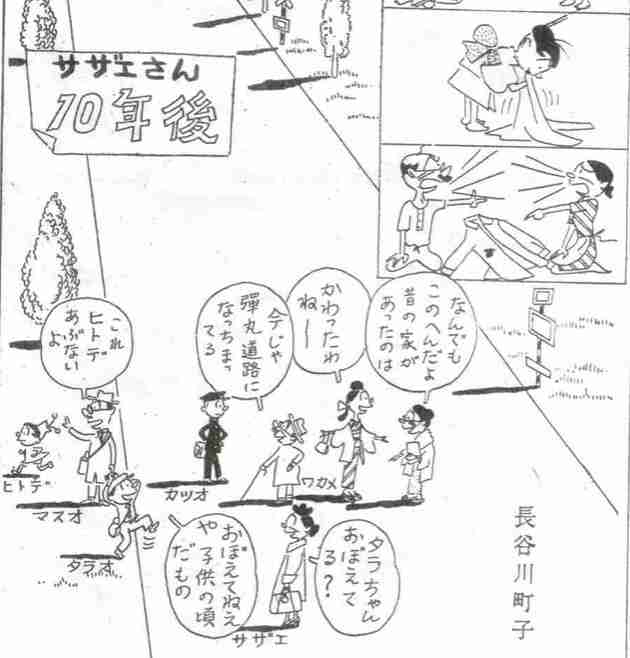 サザエさん
10年後
なんでも
このへんだよ
昔の家が
あったのは
かわったわ
ねー
今じゃ
弾丸道路に
なっちまっ
てる
これ
ヒトデ
あぶない
よ
ヒトデ
マスオ
タラオ
カツオ
ワカメ
タラちゃん
おぼえて
る?
おぼえてねえ
や子供の頃
だもの
サザエ
長谷川町子